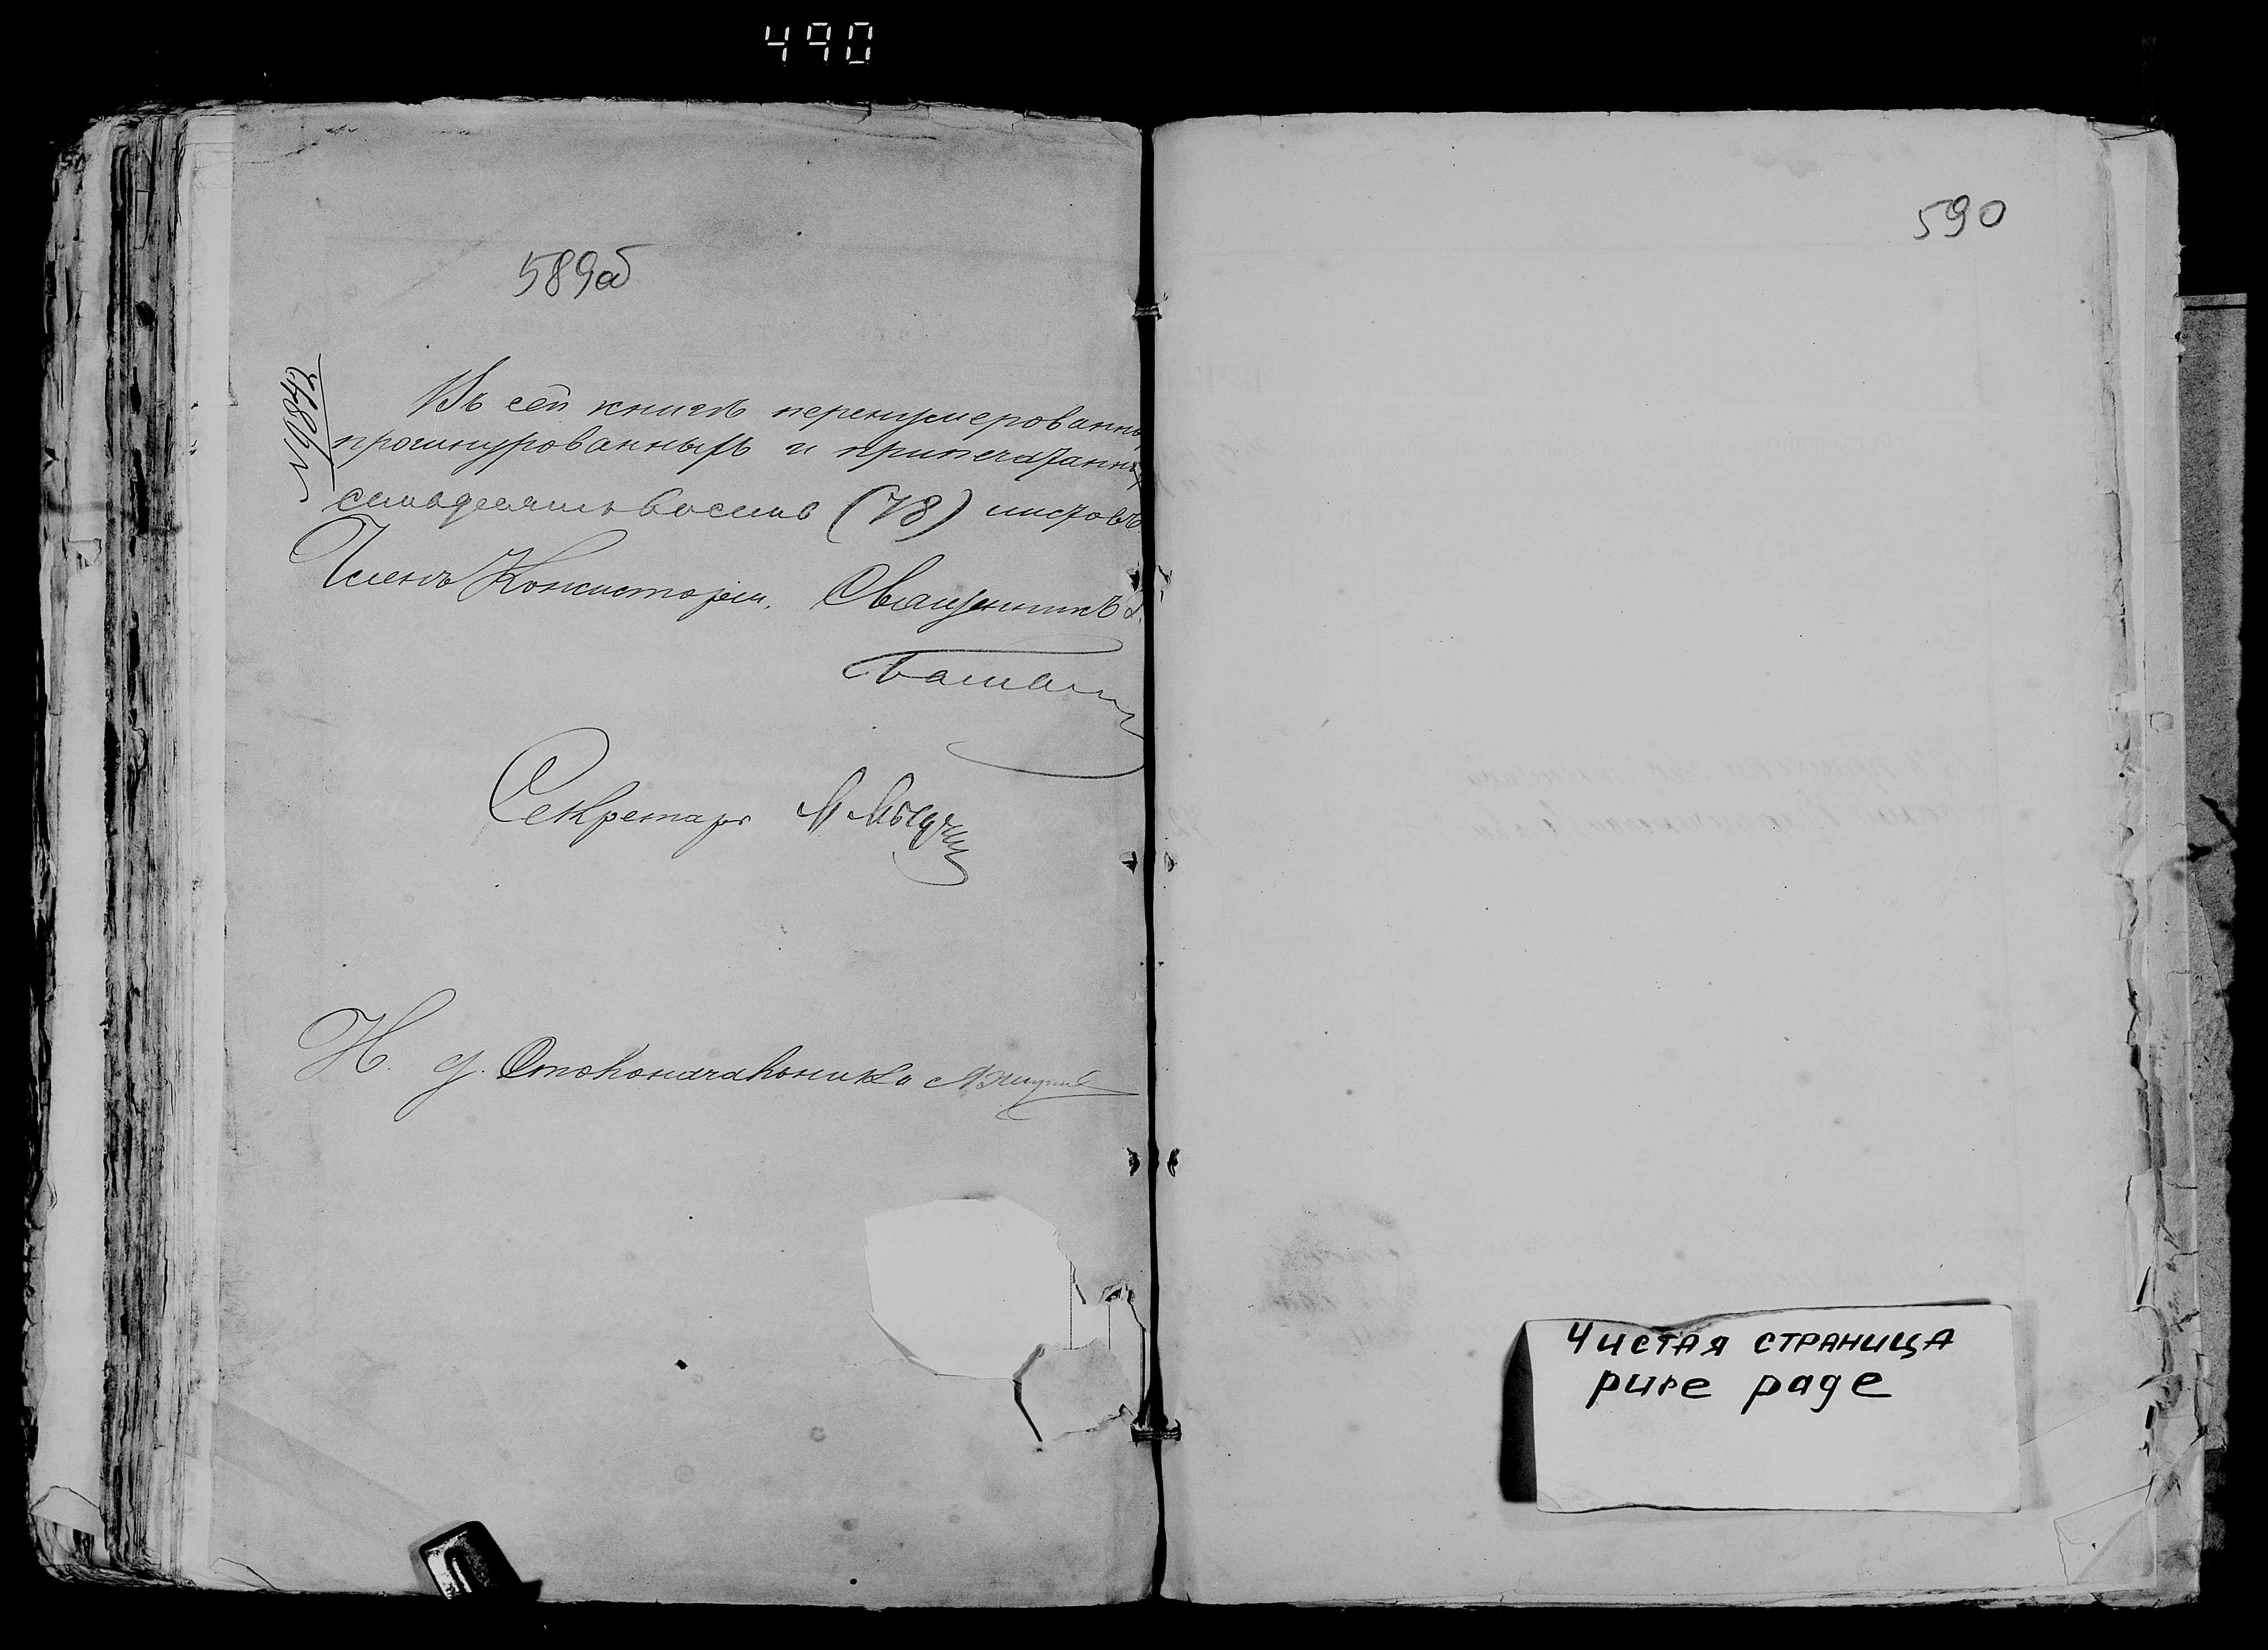 490
589об
№ 9842
Въ сей книгѣ перенумерованны
прошнурованныхъ и припечатанных
семьдесять восемь (78) листовъ
Членъ Консисторіи, Священникъ
Секретарь М
И. д. Столоначальника
590
Чистая страница
pure page